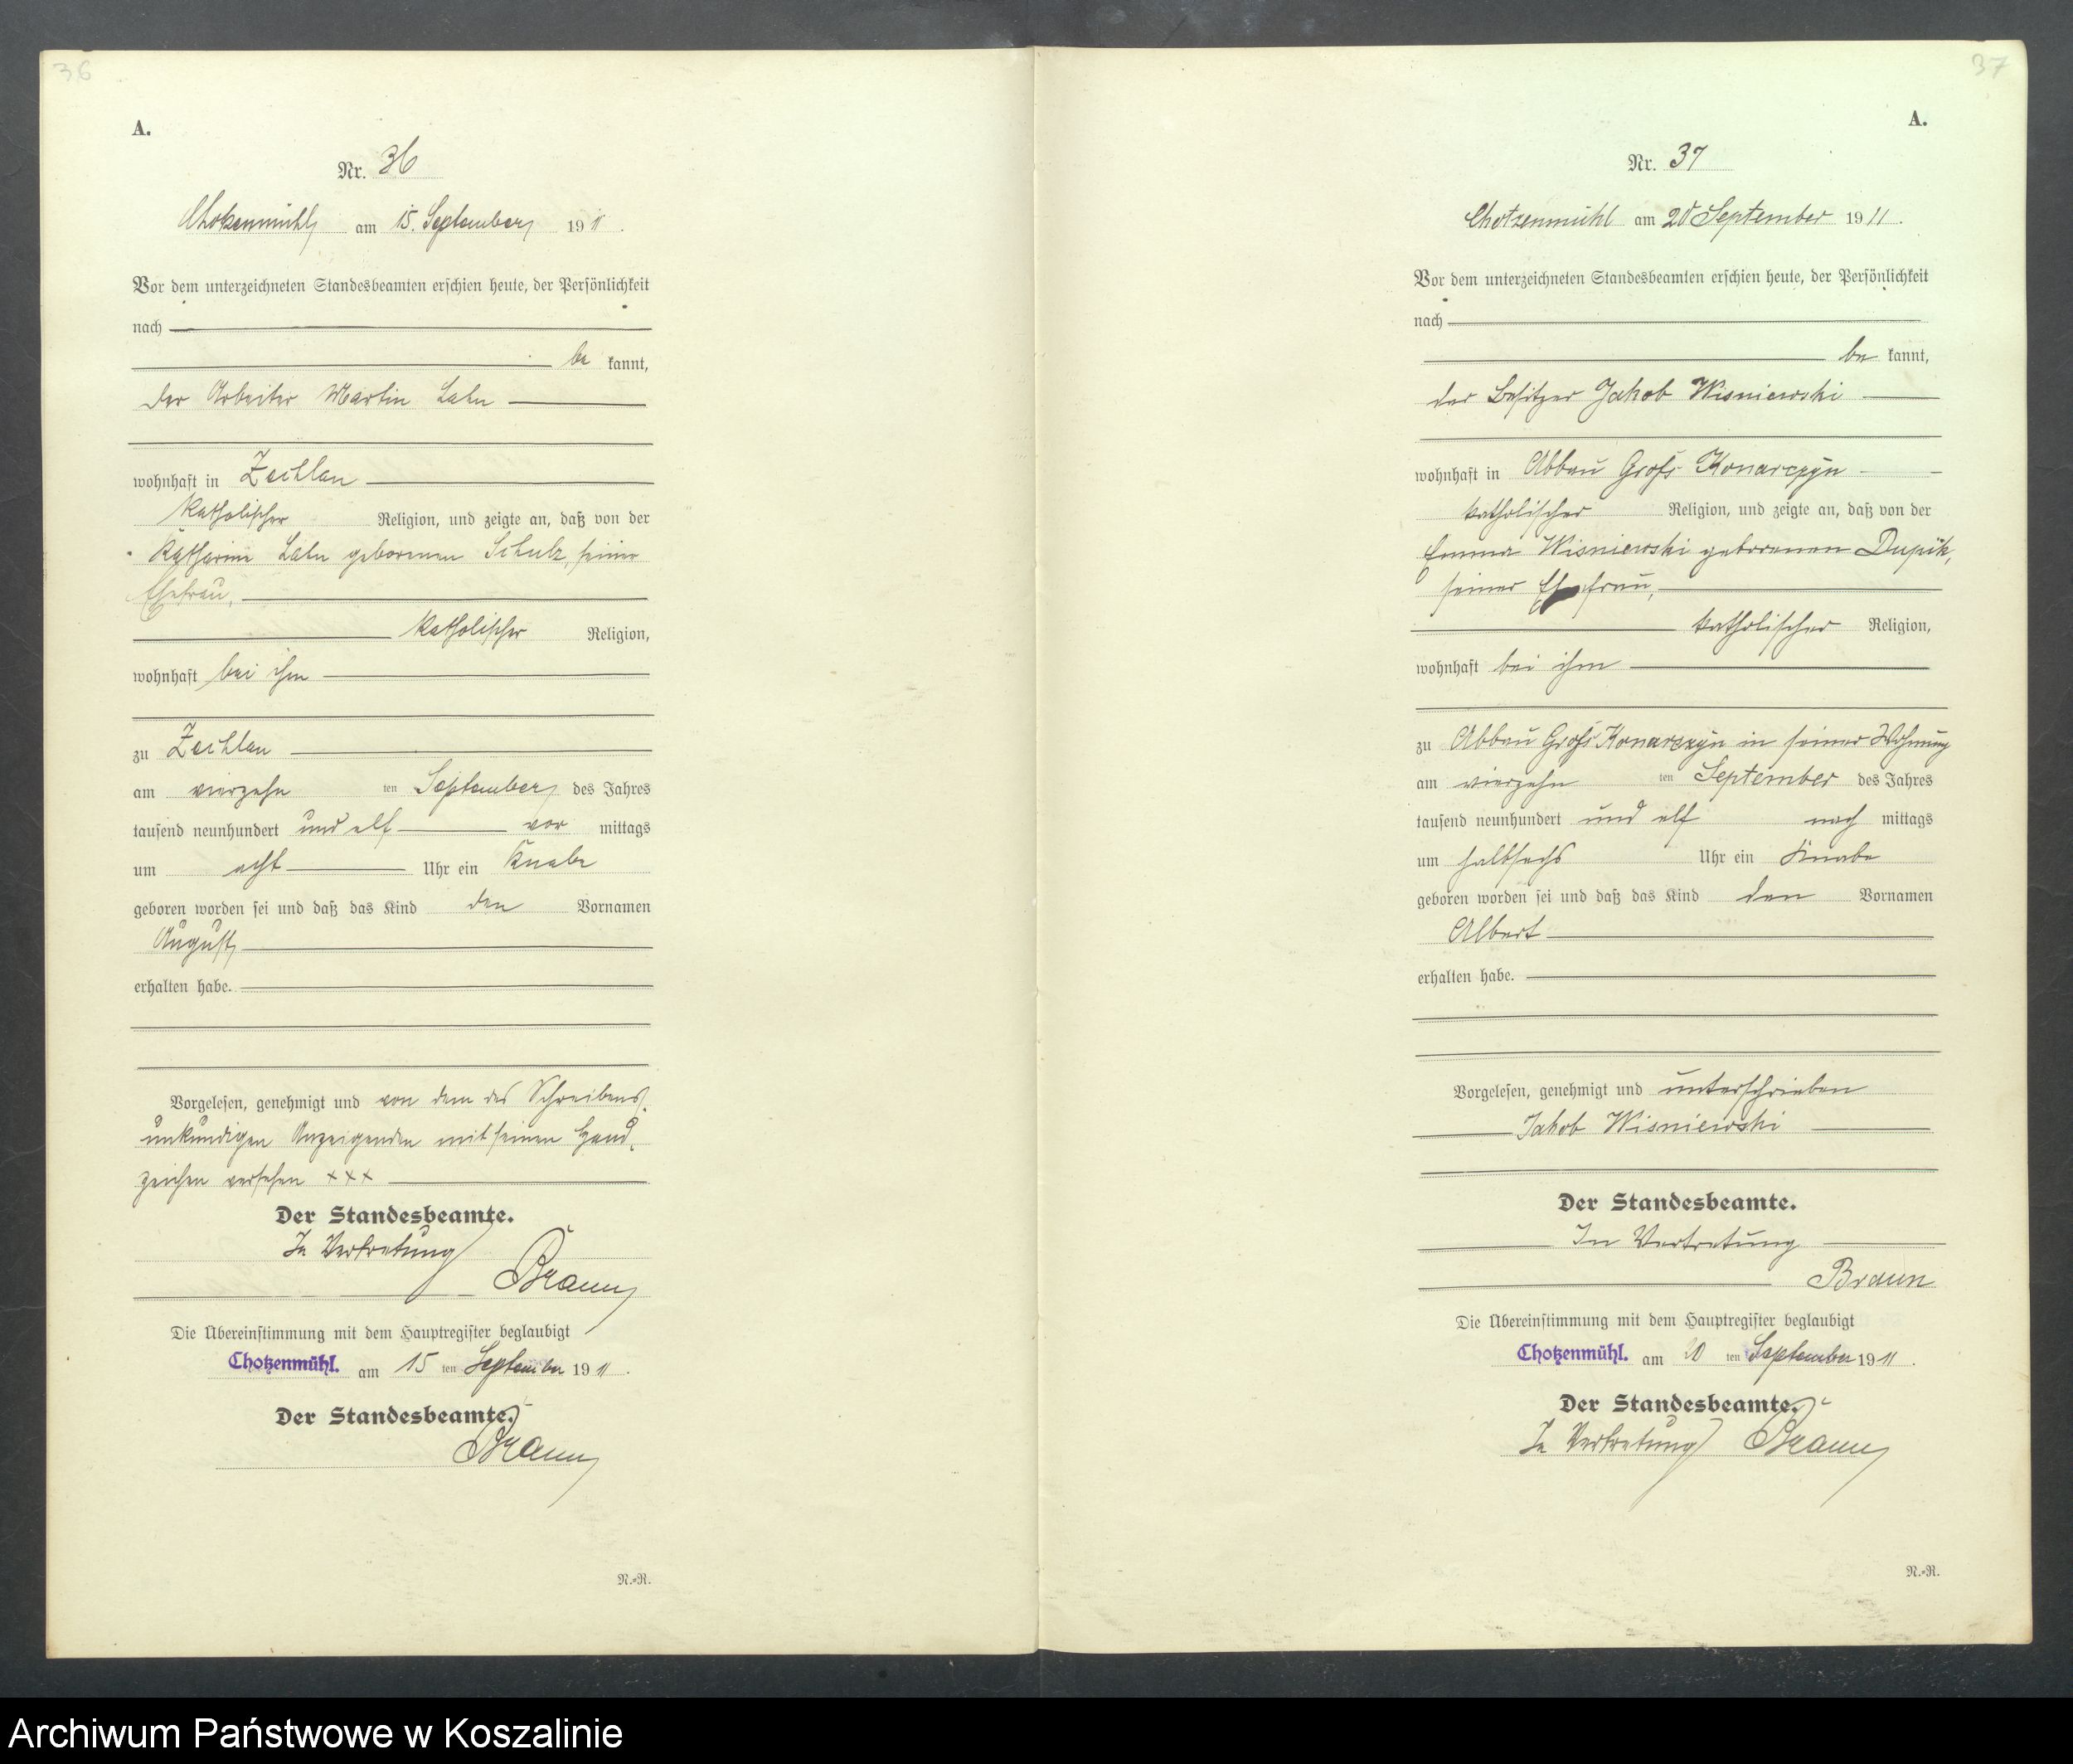 36
A.
Nr. 36
Chotzenmühl am 15. September 1911.
Vor dem unterzeichneten Standesbeamten erschien heute, der Persönlichkeit
nach
be kannt,
der Arbeiter Martin
wohnhaft in Zechlau
katholischer Religion, und zeigte an, daß von der
Katharina geborenen Schulz, seiner
Ehefrau,
katholischer Religion,
wohnhaft bei ihm
zu Zechlau
am vierzehn ten September des Jahres
tausend neunhundert und elf vor mittags
um acht Uhr ein Knabe
geboren worden sei und daß das Kind den Vornamen
August
erhalten habe.
Vorgelesen, genehmigt und von dem des Schreibens
unkundigen Anzeigenden mit seinen Hand-
zeichen versehen xxx
Der Standesbeamte.
In Vertretung
Braun
Die Übereinstimmung mit dem Hauptregister beglaubigt
Chotzenmühl. am 15 ten September 1911.
Der Standesbeamte.
Braun
N.-R.
37
A.
Nr. 37
Chotzenmühl am 20 September 1911.
Vor dem unterzeichneten Standesbeamten erschien heute, der Persönlichkeit
nach
be kannt,
der Besitzer Jakob Wisniewski
wohnhaft in Abbau Groß Konarczyn
katholischer Religion, und zeigte an, daß von der
Emma Wisniewski geborenen Dupik,
seiner Ehefrau,
katholischer Religion,
wohnhaft bei ihm
zu Abbau Groß Konarczyn in seiner Wohnung
am vierzehn ten September des Jahres
tausend neunhundert und elf nach mittags
um halbsechs Uhr ein Knabe
geboren worden sei und daß das Kind den Vornamen
Albert
erhalten habe.
Vorgelesen, genehmigt und unterschrieben
Jakob Wisniewski
Der Standesbeamte.
In Vertretung
Braun
Die Übereinstimmung mit dem Hauptregister beglaubigt
Chotzenmühl. am 20 ten September 1911.
Der Standesbeamte.
In Vertretung Braun
N.-R.
Archiwum Państwowe w Koszalinie